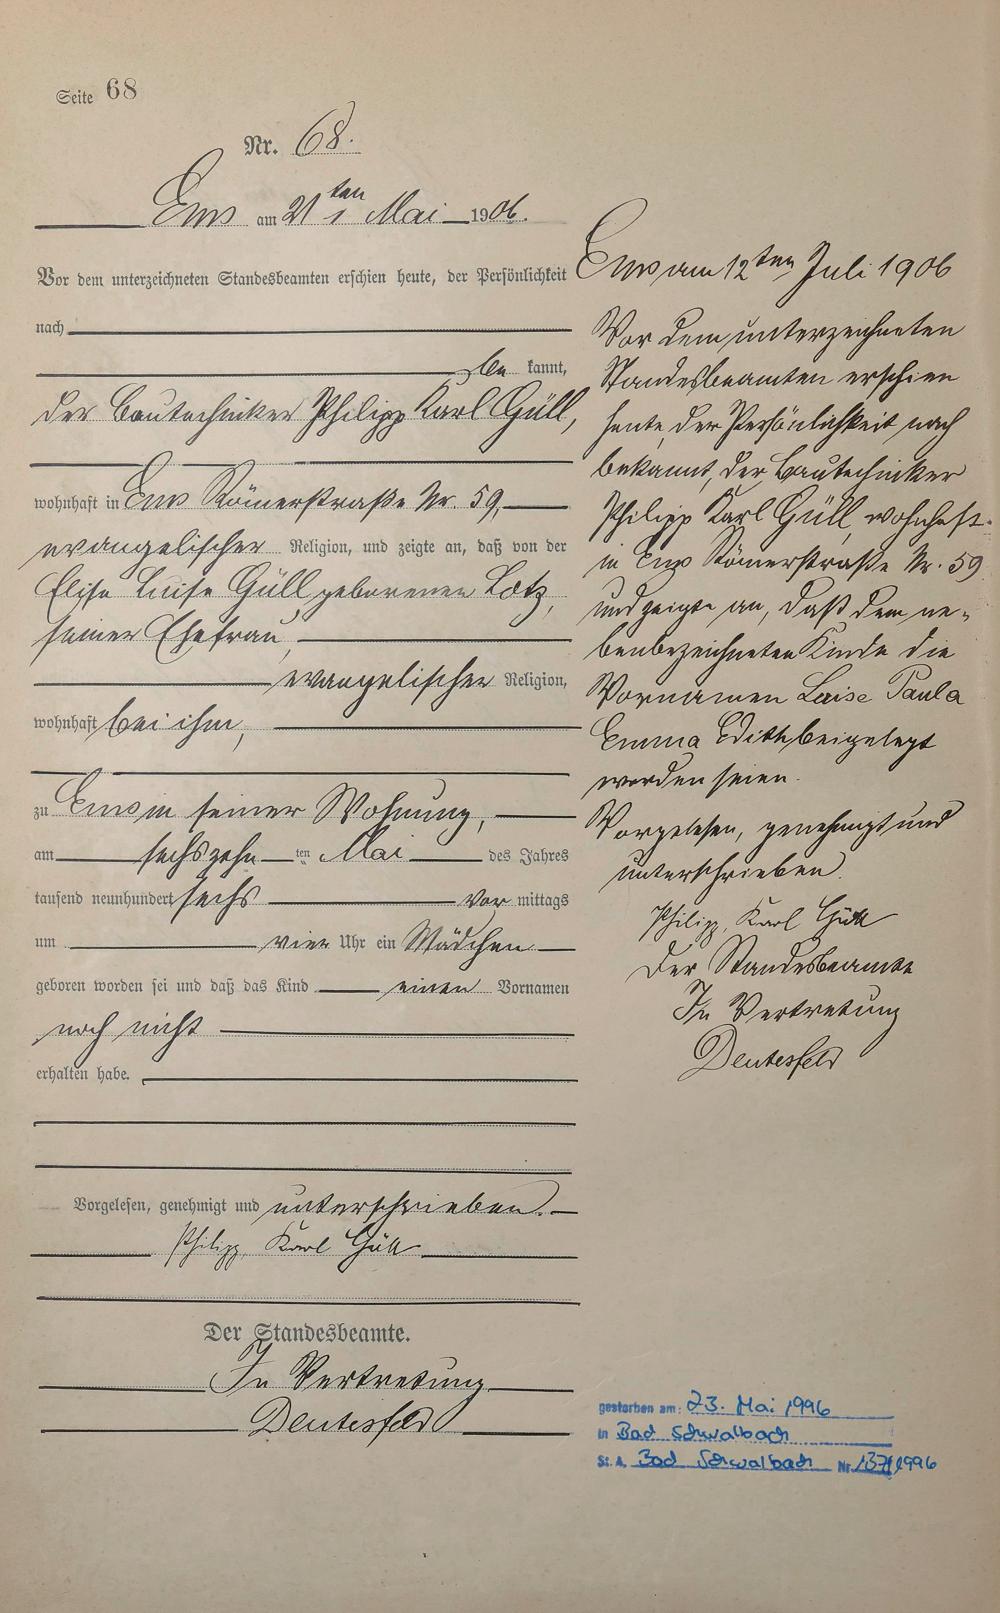 Seite 68
Nr. 68.
Ems am 21ten Mai 1906.
Vor dem unterzeichneten Standesbeamten erschien heute, der Persönlichkeit
nach
be kannt,
der Bautechniker Philipp Karl Güll,
wohnhaft in Ems Römerstraße Nr. 59,
evangelischer Religion, und zeigte an, daß von der
Elise Luise Güll geborenen Lotz,
seiner Ehefrau,
evangelischer Religion,
wohnhaft bei ihm,
zu Ems in seiner Wohnung,
am sechszehn ten Mai des Jahres
tausend neunhundert sechs vor mittags
um vier Uhr ein Mädchen
geboren worden sei und daß das Kind einen Vornamen
noch nicht
erhalten habe.
Vorgelesen, genehmigt und unterschrieben.
Philipp Karl Güll
Der Standesbeamte.
In Vertretung
Deutesfeld
Ems am 12ten Juli 1906
Vor dem unterzeichneten
Standesbeamten erschien
heute, der Persönlichkeit nach
bekannt, der Bautechniker
Philipp Karl Güll, wohnhaft
in Ems Römerstraße Nr. 59
und zeigte an, daß dem ne-
benbezeichneten Kinde die
Vornamen Luise Paula
Emma Edith beigelegt
worden seien.
Vorgelesen, genehmigt und
unterschrieben.
Philipp Karl Güll
Der Standesbeamte
In Vertretung
Deutesfeld
gestorben am: 23. Mai 1996
in Bad Schwalbach
St. A. Bad Schwalbach Nr. /1996